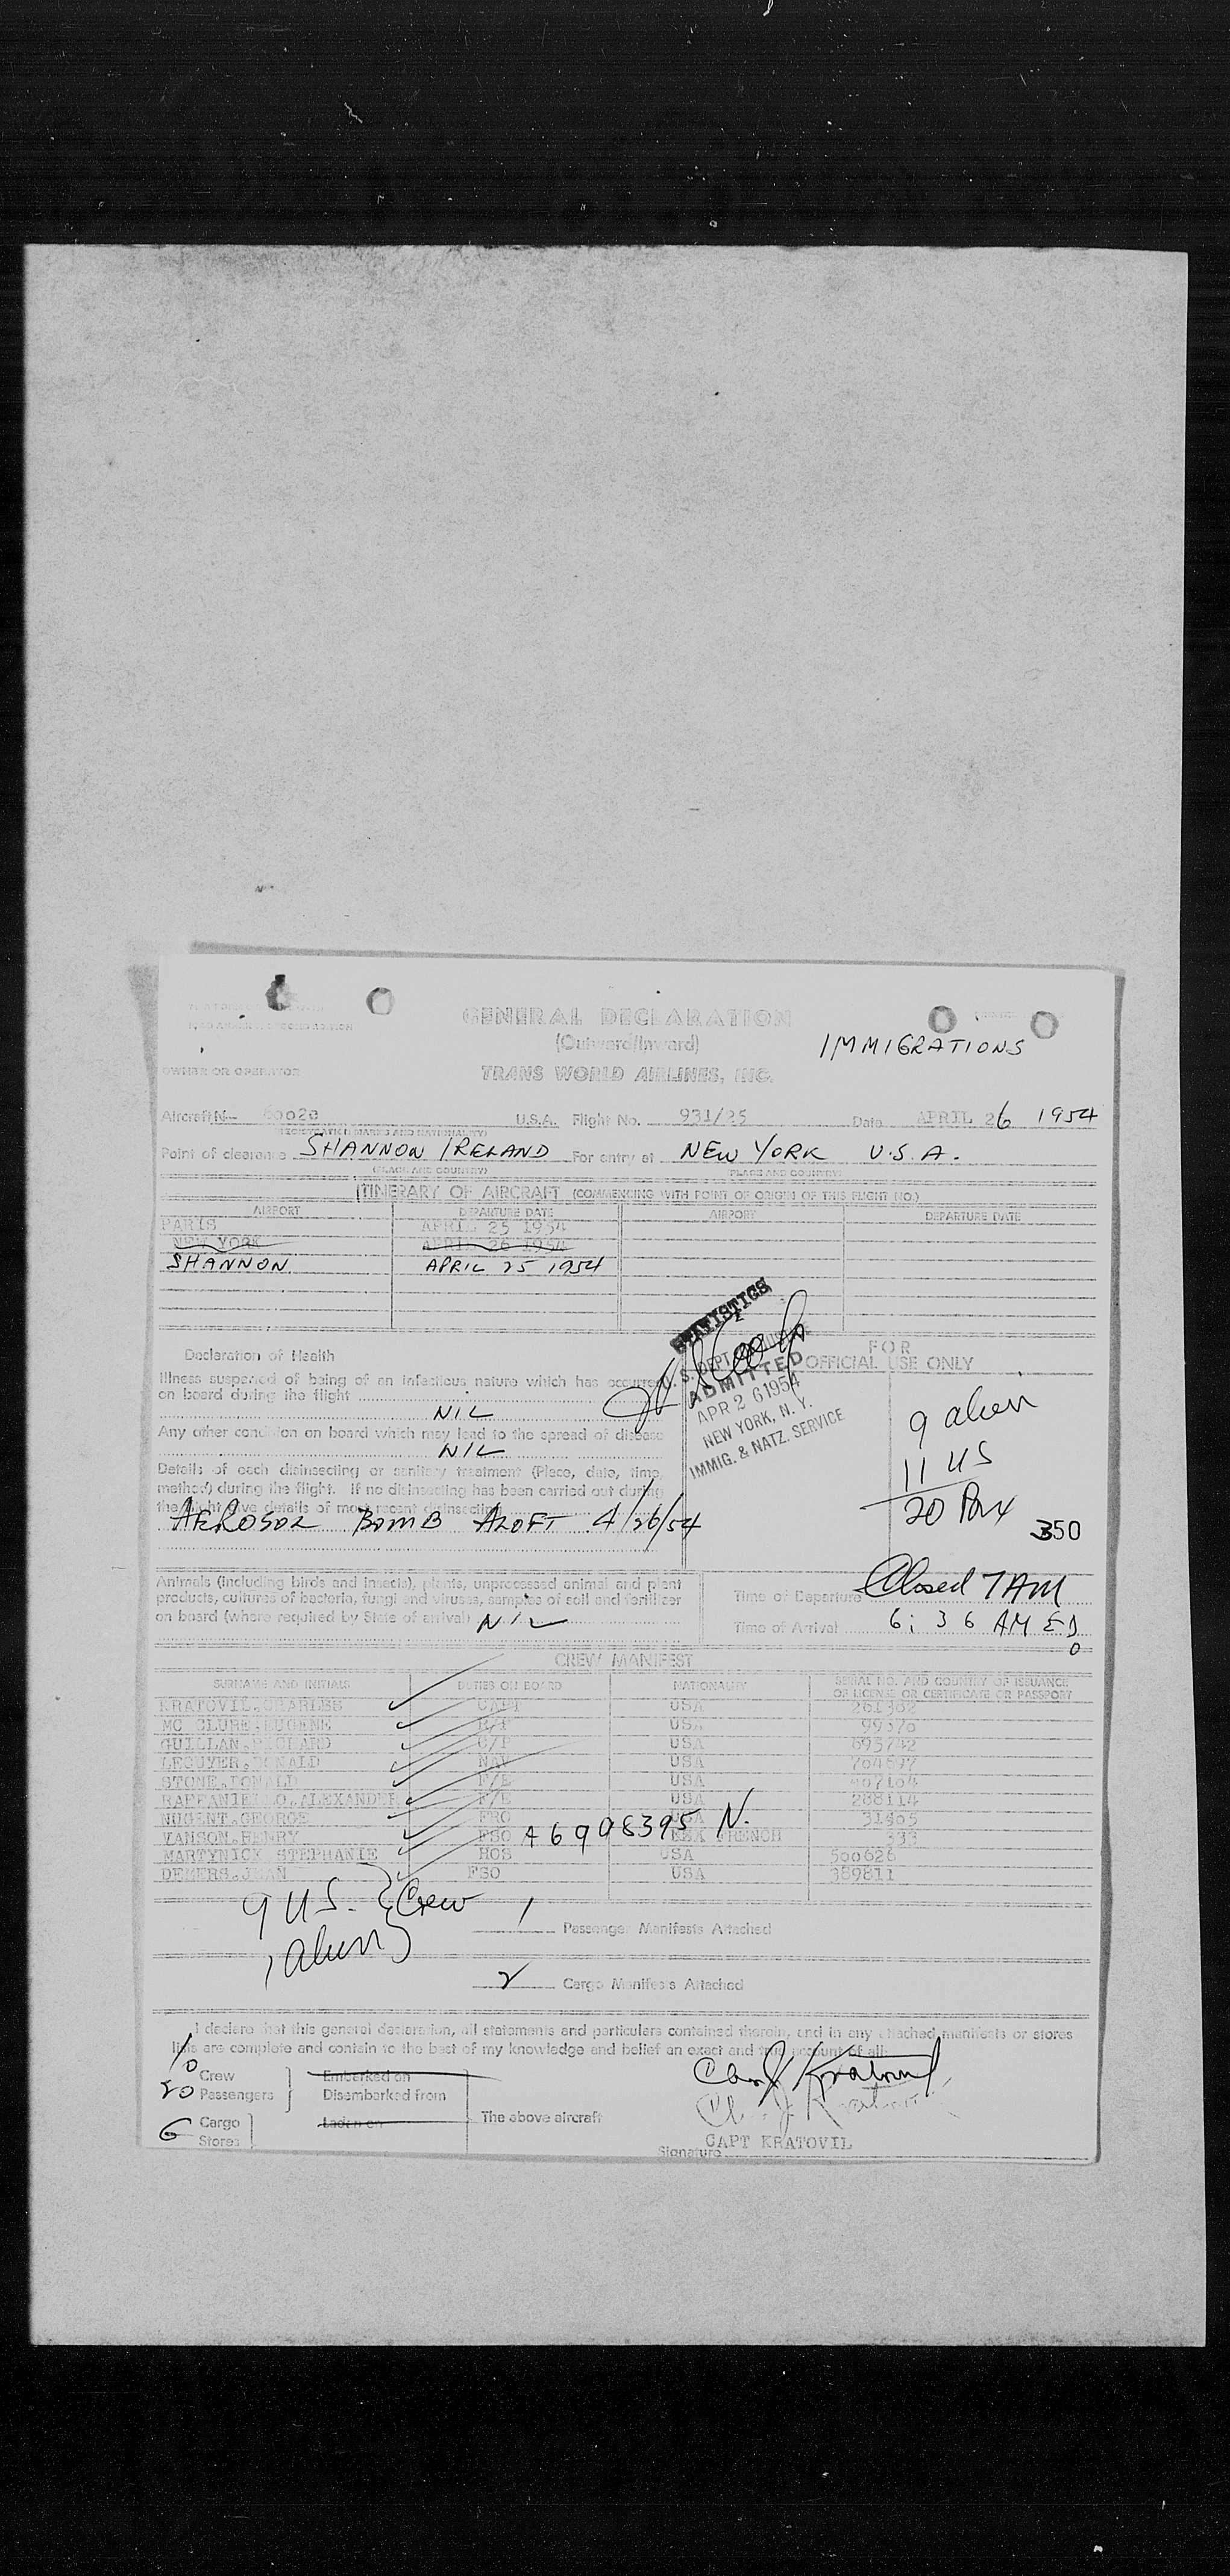 GENERAL DECLARATION
(Outward/Inward)
IMMIGRATIONS
OWNER OR OPERATOR
TRANS WORLD AIRLINES, INC.
Aircraft N— U.S.A. Flight No. 931/25 Date APRIL 26 1954
(REGISTRATION MARKS AND NATIONALITY)
Point of clearance SHANNON IRELAND For entry at NEW YORK U.S.A.
(PLACE AND COUNTRY) (PLACE AND COUNTRY)
ITINERARY OF AIRCRAFT (COMMENCING WITH POINT OF ORIGIN OF THIS FLIGHT NO.)
AIRPORT DEPARTURE DATE AIRPORT DEPARTURE DATE
PARIS APRIL 25 1954
NEW YORK APRIL 26 1954
SHANNON APRIL 25 1954
STATISTICS
Declaration of Health
FOR
OFFICIAL USE ONLY
Illness suspected of being of an infectious nature which has occurred
on board during the flight
NIL
U. S. DEPT.
ADMITTED
APR 26 1954
NEW YORK, N. Y.
IMMIG. & NATZ. SERVICE
9 alien
11 US
20 Pax
350
Any other condition on board which may lead to the spread of disease
NIL
Details of each disinsecting or sanitary treatment (Place, date, time,
method) during the flight. If no disinsecting has been carried out during
the flight give details of most recent disinsecting
AEROSOL BOMB ALOFT 4/26/54
Animals (including birds and insects), plants, unprocessed animal and plant
products, cultures of bacteria, fungi and viruses, samples of soil and fertilizer
on board (where required by State of arrival) NIL
Time of Departure Closed 7AM
Time of Arrival 6:36 AM ED
CREW MANIFEST
SURNAME AND INITIALS DUTIES ON BOARD NATIONALITY SERIAL NO. AND COUNTRY OF ISSUANCE
OF LICENSE OR CERTIFICATE OR PASSPORT
KRATOVIL, CHARLES CAPT USA 261362
MC CLURE, EUGENE USA
GUILLAN, RICLARD USA 695742
LEGUYER, DONALD NAV USA 704697
STONE, DONALD F/E USA
RAFFANIELLO, ALEXANDER F/E USA 288114
NUGENT, GEORGE USA 31905
VANSON, HENRY FSO A6908395 N. FRENCH 333
MARTYNICK STEPHANIE HOS USA 500626
DEMERS, JEAN FSO USA 389811
9 US. } Crew
1 alien }
1 Passenger Manifests Attached
2 Cargo Manifests Attached
I declare that this general declaration, all statements and particulars contained therein, and in any attached manifests or stores
lists are complete and contain to the best of my knowledge and belief an exact and true account of all:
10 Crew
20 Passengers
Embarked on
Disembarked from
6 Cargo
Stores
Laden on
The above aircraft
Chas J Kratovil
CAPT KRATOVIL
Signature